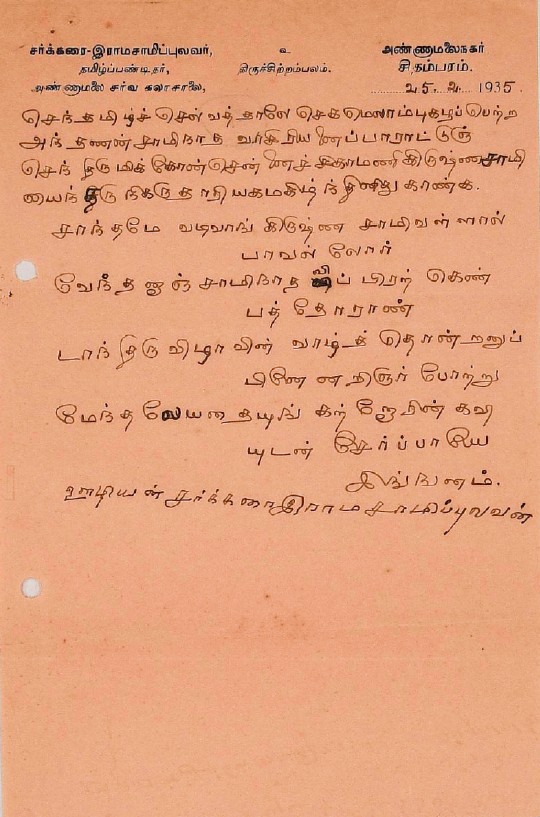 சர்க்கரை-இராமசாமிப்புலவர்,
தமிழ்ப்பண்டிதர்,
அண்ணாமலை சர்வ கலாசாலை,
உ
திருச்சிற்றம்பலம்.
அண்ணாமலைநகர்
சிதம்பரம்.
25 2 1935.
செந்தமிழ்ச் செல்வத்தாளே செகமெலாம்புகழப்பெற்ற
அந்தணன் சாமிநாத வரசிரிய னைப்பாராட்டுஞ்
செந் திருமிக் கோன்சென்னைச் சிகாமணி கிருஷ்ணசாமி
யைந்திரு நிகருதாரியகமகிழ்ந்தினிது காண்க.
சாந்தமே வடிவாங் கிருஷ்ண சாமிவள்ளால்
பாவல் லோர்
வேந்தனுஞ் சாமிநாத விப் பிரற் கெண்
பத் தோராண்
டாந் திரு விழாவின் வாழ்த் தொன்றனுப்
பினேனறிஞர் போற்று
மேந்தலேயதையுங் கற்றோரின் கவி
யுடன் சேர்ப்பாயே
இங்ஙனம்.
ஊழியன் சர்க்கரைஇராமசாமிப்புலவன்